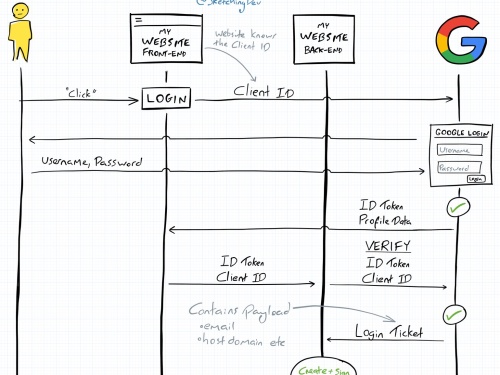 @SketchingDev
MY
WEBSITE
FRONT-END
website knows
the Client ID
MY
WEBSITE
BACK-END
G
"Click"
LOGIN
Client ID
GOOGLE LOGIN
Username
Password
Login
Username, Password
ID Token
Profile Data
VERIFY
ID Token
Client ID
ID Token
Client ID
Contains Payload
• email
• host domain etc
Login Ticket
Create + Sign